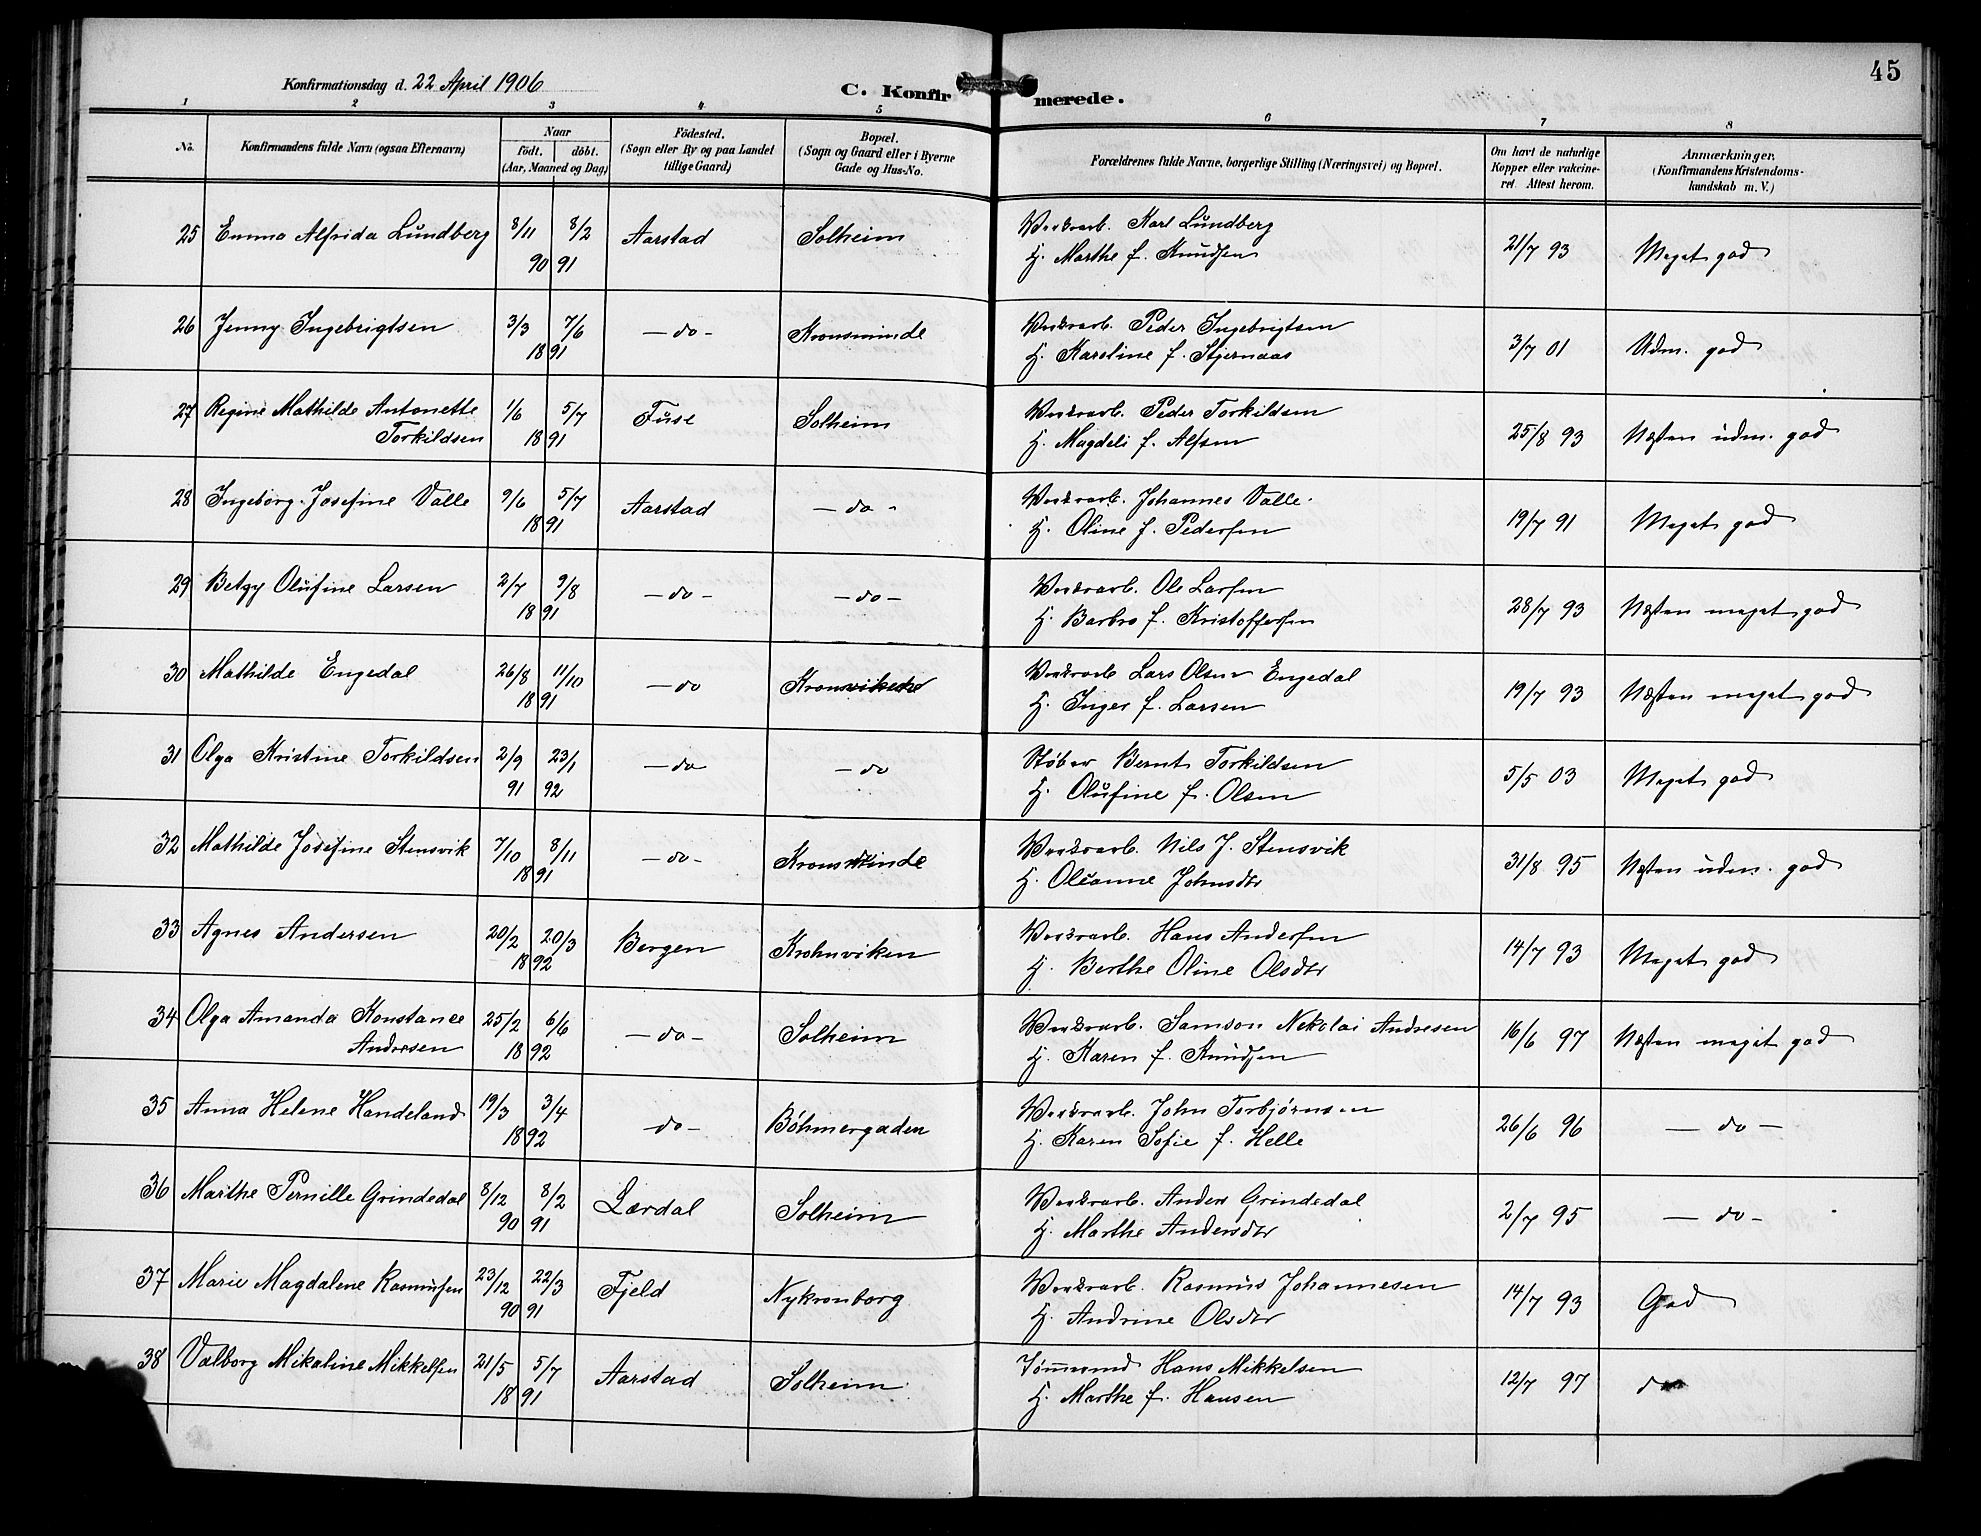 45
Konfirmationsdag d. 22 April 1906
C. Konfirmerede.
1 2 3 4 5 6 7 8
No.
Konfirmandens fulde Navn (ogsaa Efternavn)
Naar
födt. döbt.
(Aar, Maaned og Dag)
Födested.
(Sogn eller By og paa Landet
tillige Gaard)
Bopæl.
(Sogn og Gaard eller i Byerne
Gade og Hus-No.
Forældrenes fulde Navne, borgerlige Stilling (Næringsvei) og Bopæl.
Om havt de naturlige
Kopper eller vakcine-
ret. Attest herom.
Anmærkninger.
(Konfirmandens Kristendoms-
kundskab m. V.)
25 Emma Alfrida Lundberg 8/11 90 8/2 91 Aarstad Solheim
Værksarb. Karl Lundberg
H. Marthe f. Knudsen 21/7 93 Meget god
26 Jenny Ingebrigtsen 3/3 7/6 1891 - do - Kronsminde
Værksarb. Peder Ingebrigtsen
H. Karoline f. Stjernaas 3/7 01 Udm. god
27 Regine Mathilde Antonette
Torkildsen 1/6 5/7 1891 Fuse Solheim
Værksarb. Peder Torkildsen
H. Magdeli f. Alfsen 25/8 93 Næsten udm. god
28 Ingeborg Josefine Valle 9/6 5/7 1891 Aarstad - do -
Værksarb. Johannes Valle
H. Oline f. Pedersen 19/7 91 Meget god
29 Betzy Olufine Larsen 2/7 9/8 1891 - do - - do -
Værksarb. Ole Larsen
H. Barbro f. Kristoffersen 28/7 93 Næsten meget god
30 Mathilde Engedal 26/8 11/10 1891 - do
Værksarb. Lars Olsen Engedal
H. Inger f. Larsen 19/7 93 Næsten meget god
31 Olga Kristine Torkildsen 2/9 91 23/1 92 - do - do
Støber Bernt Torkildsen
H. Olufine f. Olsen 5/5 03 Meget god
32 Mathilde Josefine Stensvik 7/10 8/11 1891 - do - Kronsminde
Værksarb. Nils J. Stensvik
H. Oleanne Johnsdtr 31/8 95 Næsten udm. god
33 Agnes Andersen 20/2 20/3 1892 Bergen Krohnviken
Værksarb. Hans Andersen
H. Berthe Oline Olsdtr 14/7 93 Meget god
34 Olga Amanda Konstance
Andresen 25/2 6/6 1892 - do - Solheim
Værksarb. Samson Nikolai Andresen
H. Karen f. Knudsen 16/6 97 Næsten meget god
35 Anna Helene Handeland 19/3 3/4 1892 do - Böhmergaden
Værksarb. John Torbjørnsen
H. Karen Sofie f. Helle 26/6 96 - do -
36 Marthe Pernille Grindedal 8/12 90 8/2 91 Lærdal Solheim
Værksarb. Anders Grindedal
H. Marthe Andersdtr 2/7 95 - do -
37 Marie Magdalene Rasmusen 23/12 90 22/3 91 Fjeld Nykronborg
Værksarb. Rasmus Johannesen
H. Andrine Olsdtr 14/7 93 God
38 Valborg Mikaline Mikkelsen 21/5 5/7 1891 Aarstad Solheim
Tømmermd Hans Mikkelsen
H. Marthe f. Hansen 12/7 97 do